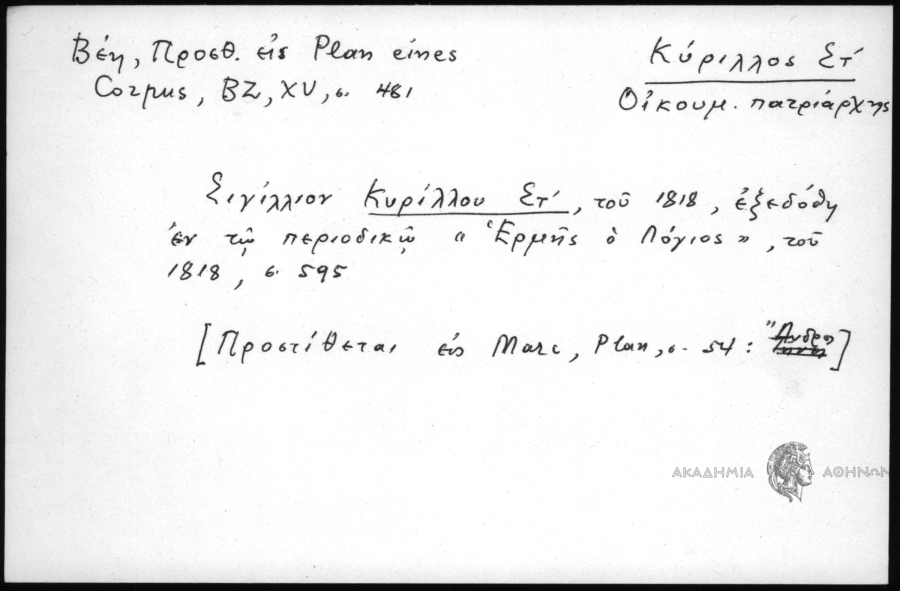 Βέη, Προσθ. εἰς Plan eines
Corpus, BZ, XV, σ. 481
Κύριλλος Ϛτ΄
Οἰκουμ. πατριάρχης
Σιγίλλιον Κυρίλλου Ϛτ΄, τοῦ 1818, ἐξεδόθη
ἐν τῷ περιοδικῷ «Ἑρμῆς ὁ Λόγιος», τοῦ
1818, σ. 595
[Προστίθεται εἰς Marc, Plan, σ. 54: "Ανδρος]
ΑΚΑΔΗΜΙΑ ΑΘΗΝΩΝ